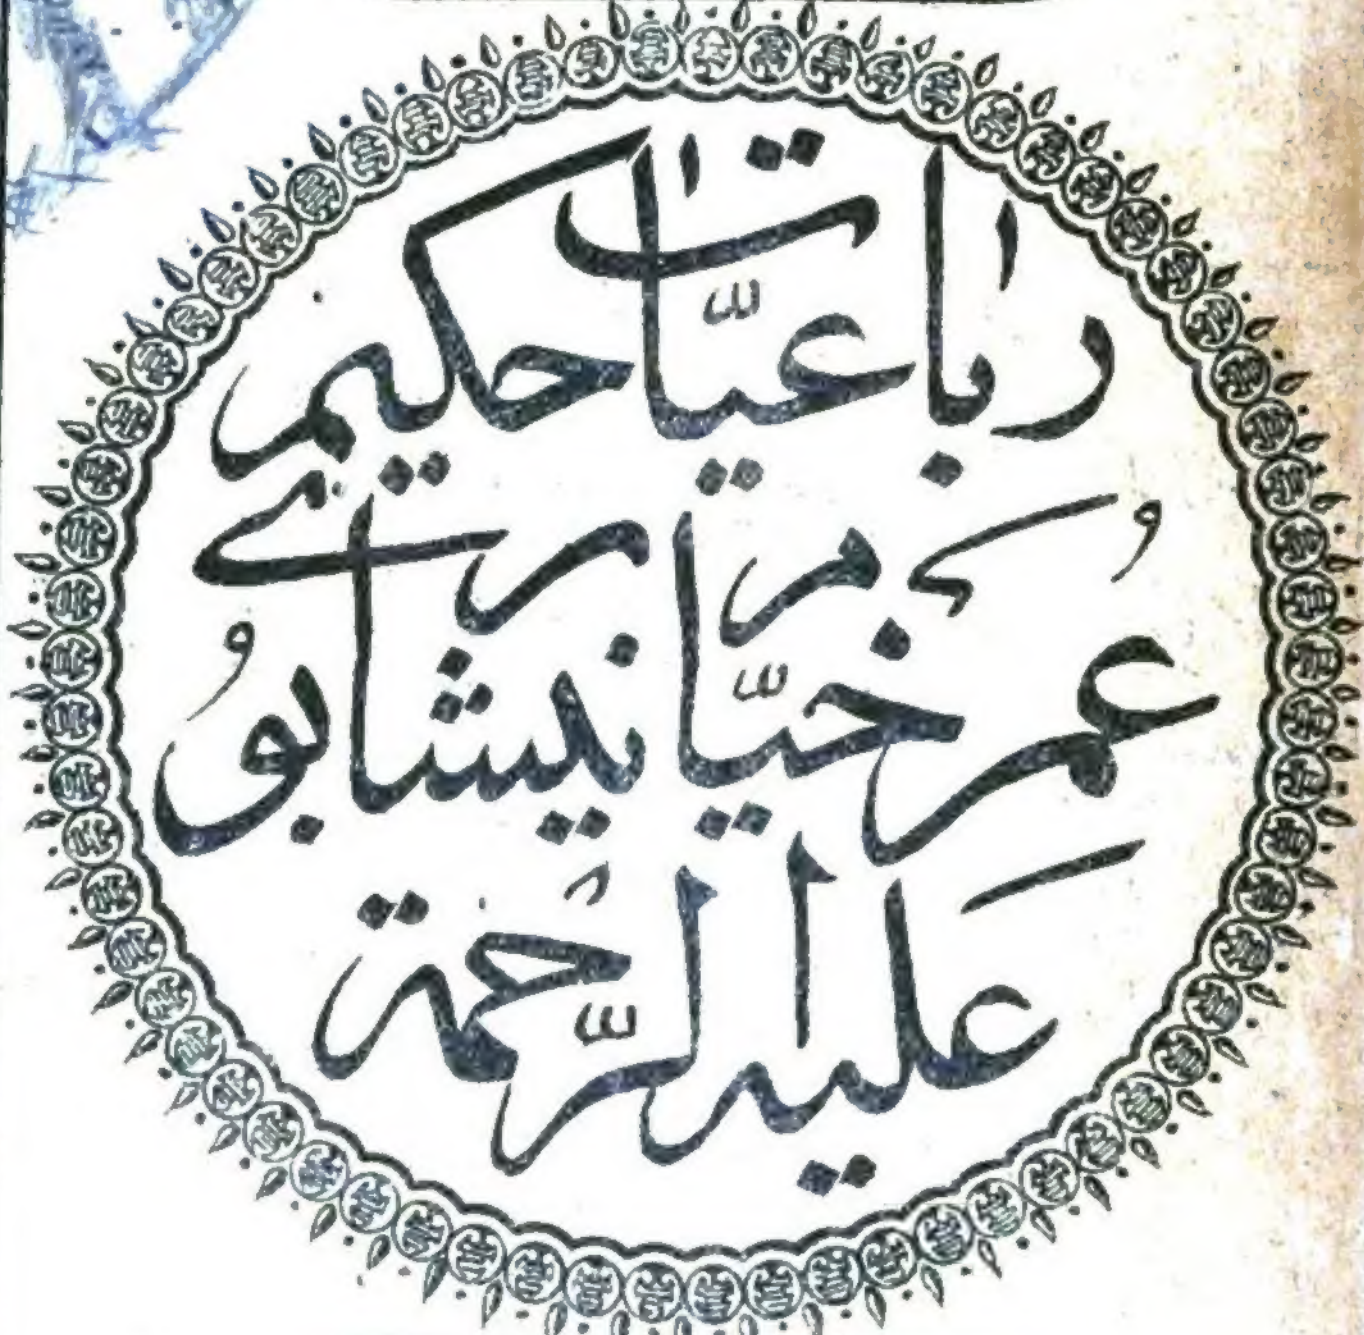 رباعیات حکیم
عمر خیام نیشاپوری
علیہ الرحمۃ